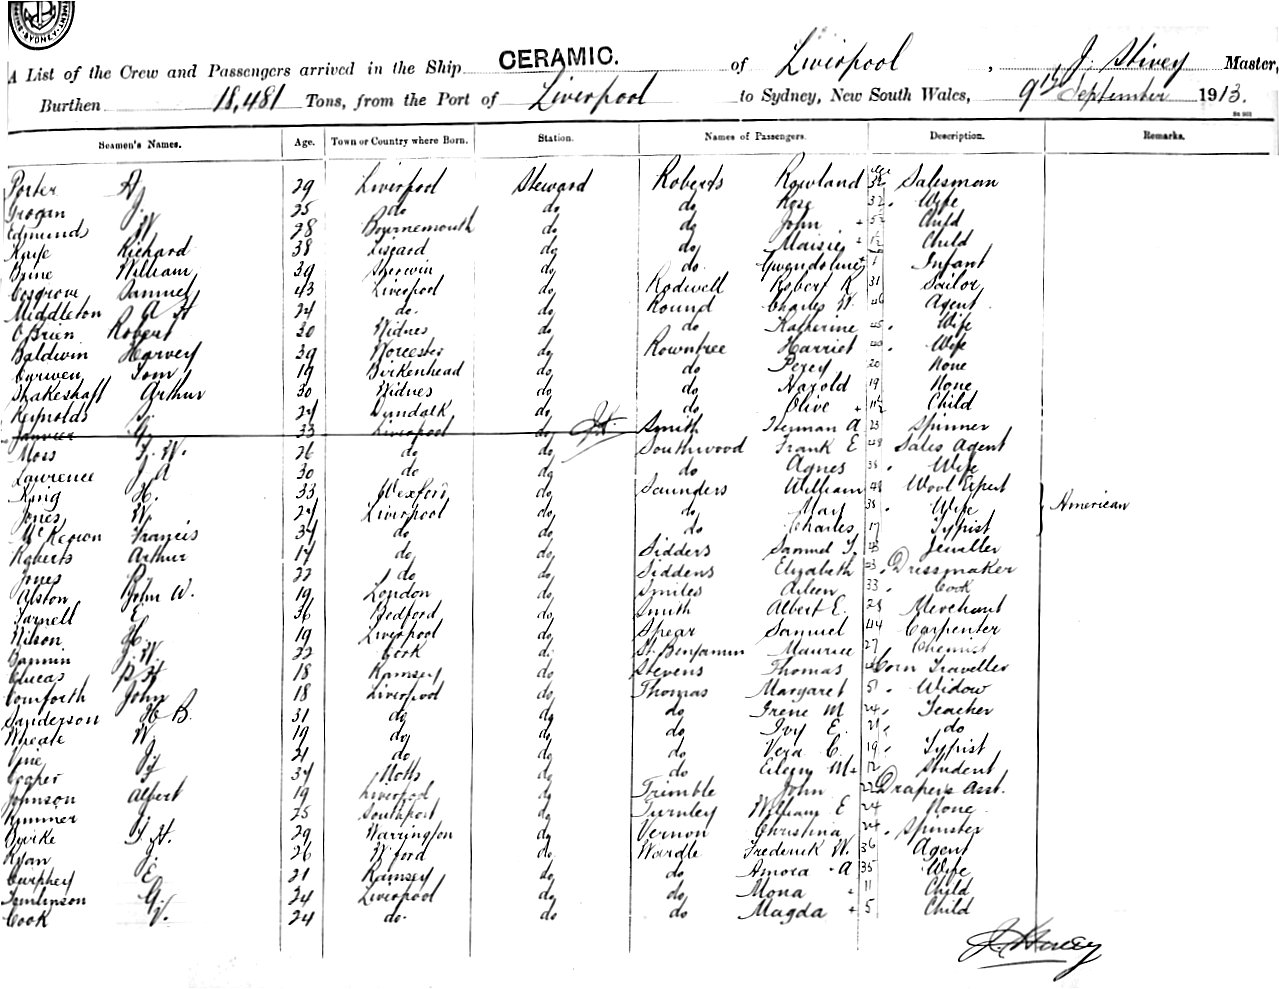 SYDNEY
A List of the Crew and Passengers arrived in the Ship CERAMIC. of Liverpool, J. Stivey Master,
Burthen 18,481 Tons, from the Port of Liverpool to Sydney, New South Wales, 9th September 1913.
Seamen's Names. Age. Town or Country where Born. Station. Names of Passengers. Description. Remarks.
Porter A 29 Liverpool Steward Roberts Rowland 32 Salesman
Grogan J. 25 do do do Rose 32 Wife
Edmunds W 28 Bournemouth do do John + 5½ Child
Kaye Richard 38 Liscard do do Maisie + 1½ Child
Brine William 39 do do Gwendoline + 1 Infant
Cosgrove Samuel 43 Liverpool do Rodwell Robert R 31 Sailor
Middleton A H 24 do. do Round Charles W. 46 Agent
O'Brien Robert 30 Widnes do do Katherine 45 Wife
Baldwin Harvey 39 Worcester do Rowntree Harriet 40 Wife
Curwen Tom 19 Birkenhead do do Percy 20 None
Shakeshaft Arthur 30 Widnes do do Harold 19 None
Reynolds 24 Dundalk do do Olive + 11½ Child
Janvier G 33 Liverpool do Smith Herman A 23 Spinner
Moss F. W. 26 do do Southwood Frank E 48 Sales Agent
Lawrence J A 30 do do do Agnes 38 Wife
King H. 33 Wexford do Saunders William 48 Wool Expert
Jones W 24 Liverpool do do May 38 Wife American
McKeown Francis 34 do do do Charles 17 Typist
Roberts Arthur 17 do do Sidders Samuel T. 43 Jeweller
Jones R 22 do do Siddens Elizabeth 43 Dressmaker
Alston John W. 19 London do Smiles Aileen 33 Cook
Farnell E. 36 Bedford do Smith Albert E. 28 Merchant
Wilson H. 19 Liverpool do Spear Samuel 44 Carpenter
Bannin J. W. 22 Cork do St. Benjamin Maurice 27 Chemist
Clucas P H 18 Ramsey do Stevens Thomas Corn Traveller
Cornforth John 18 Liverpool do Thomas Margaret 51 Widow
Sanderson H B. 31 do do do Irene M 24 Teacher
Wheate W 19 do do do Ivy E. 21 do
Vine J 21 do do do Vera C. 19 Typist
Cooper F 34 Notts do do Eileen M + 12 Student
Johnson Albert 19 Liverpool do Trimble John 22 Drapers Asst.
Rimmer 25 Southport do Turnley William E 24 None
Dyvike T. H. 29 Warrington do Vernon Christina 24 Spinster
Ryan J. 26 do Wardle Frederick W. 36 Agent
Curphey E. 21 Ramsey do do Amora A 35 Wife
Tomlinson G. 24 Liverpool do do Mona + 11 Child
Cook V. 24 do. do do Magda + 5 Child
J. Stivey